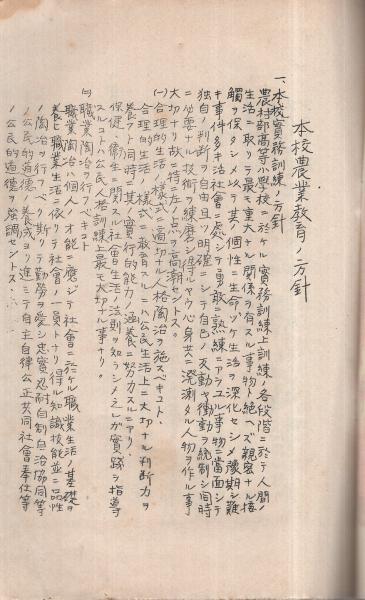 本校農業教育ノ方針
一、本校實務訓練ノ方針
農村部高等小學校ニ於ケル實務訓練上訓練ノ各段階ニ於テ人間ノ
生活ニ取リテ最モ重大ナル關係ヲ有スル事物ト絶ヘズ觀察ナル接
觸ヲ保タシメ以テ其ノ個性ニ生命ヅケ生活ヲ深化セシメ豫期シ難
キ事件多キ社會ニ處シテ勇敢ニ熟練ニアラユル事物ニ當面シテ
獨自ノ判斷ヲ自由且ツ明確ニシテ自己ノ反動ヤ衝動ヲ統制シ同時
ニ必要ナル技術ヲ練磨シ得ルヤウ心身共ニ溌溂タル人物ヲ作ル事
大切ナリ故ニ特ニ左ノ点ヲ高潮セントス。
(一)合理的生活ノ樣式ニ適切ナル人格陶冶ヲ施スベキコト、
合理的生活ノ樣式ニ教育スルニハ公民生活上ニ大切ナル判斷力ヲ
養フト同時ニ其ノ實行的能力ノ涵養ニ努力スルニアリ、
保健、衞生ニ関スル社會生活ノ法則ヲ知ラシメ之レガ實踐ヲ指導
スルコトハ公民人格訓練上最モ大切ナル事ナリ。
(二)職業陶冶ヲ行フベキコト、
職業陶冶ハ個人ノ才能ニ應ジテ社會ニ於ケル職業生活ノ基礎ヲ
養ヒ職業生活ニ依リテ社會ノ一員トナリ得ル知識技能並ニ品性
ノ陶冶ヲ行フベク斯クテ勤勞ヲ愛シ忠實、忍耐、自制、自治、協同等
ノ公民的道德ノ養成ヨリ進ミテ自主自律、公正、共同、社會奉仕等
ノ公民的道德ヲ強調セントス、